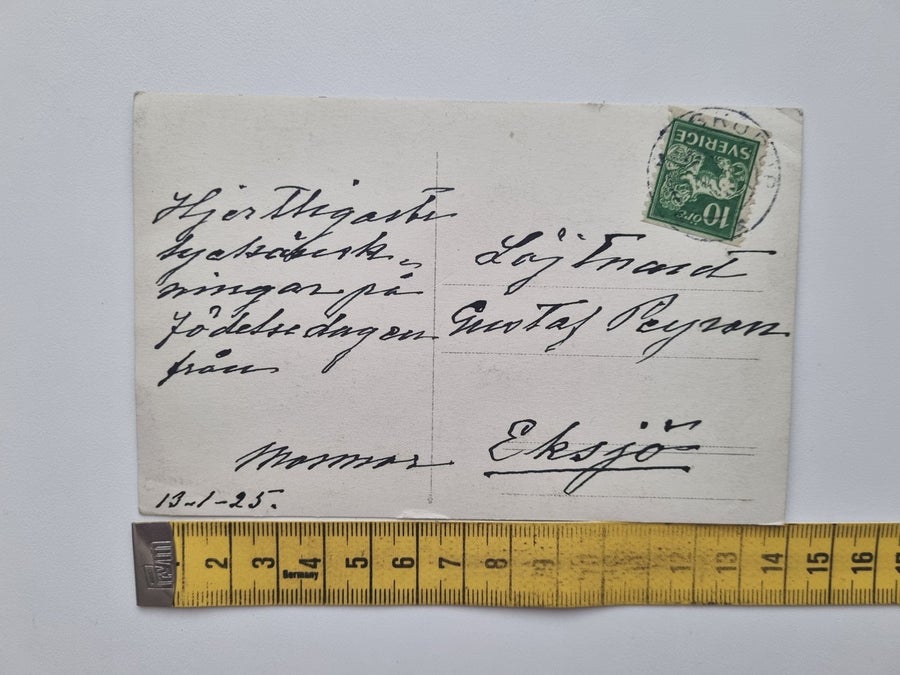 Hjertligaste
lyckönsk-
ningar på
födelsedagen
från
Mormor
13-1-25.
Löjtnant
Gustaf Peyron
Eksjö
SVERIGE
10 öre
2 3 4 5 6 7 8 9 10 11 12 13 14 15 16
Germany